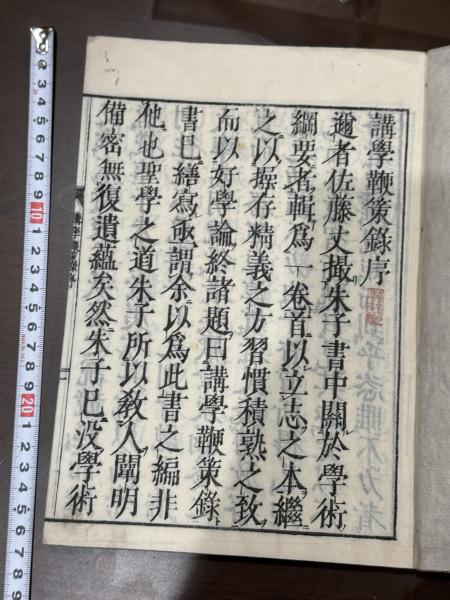 講學鞭策錄序
邇者佐藤丈撮朱子書中關於學術
綱要者輯爲一卷首以立志之本繼
之以操存精義之方習慣積熟之致
而以好學論終諸題曰講學鞭策錄
書已繕寫亟謂余以爲此書之編非
他也聖學之道朱子所以教人闡明
備密無復遺蘊矣然朱子已没學術
3 4 5 6 7 8 9 10 1 2 3 4 5 6 7 8 9 20 1 2 3 4 5 6 7 8 9